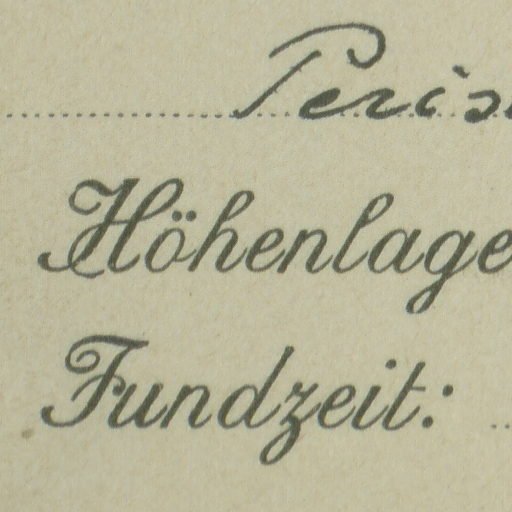 Peris
Höhenlage
Fundzeit: